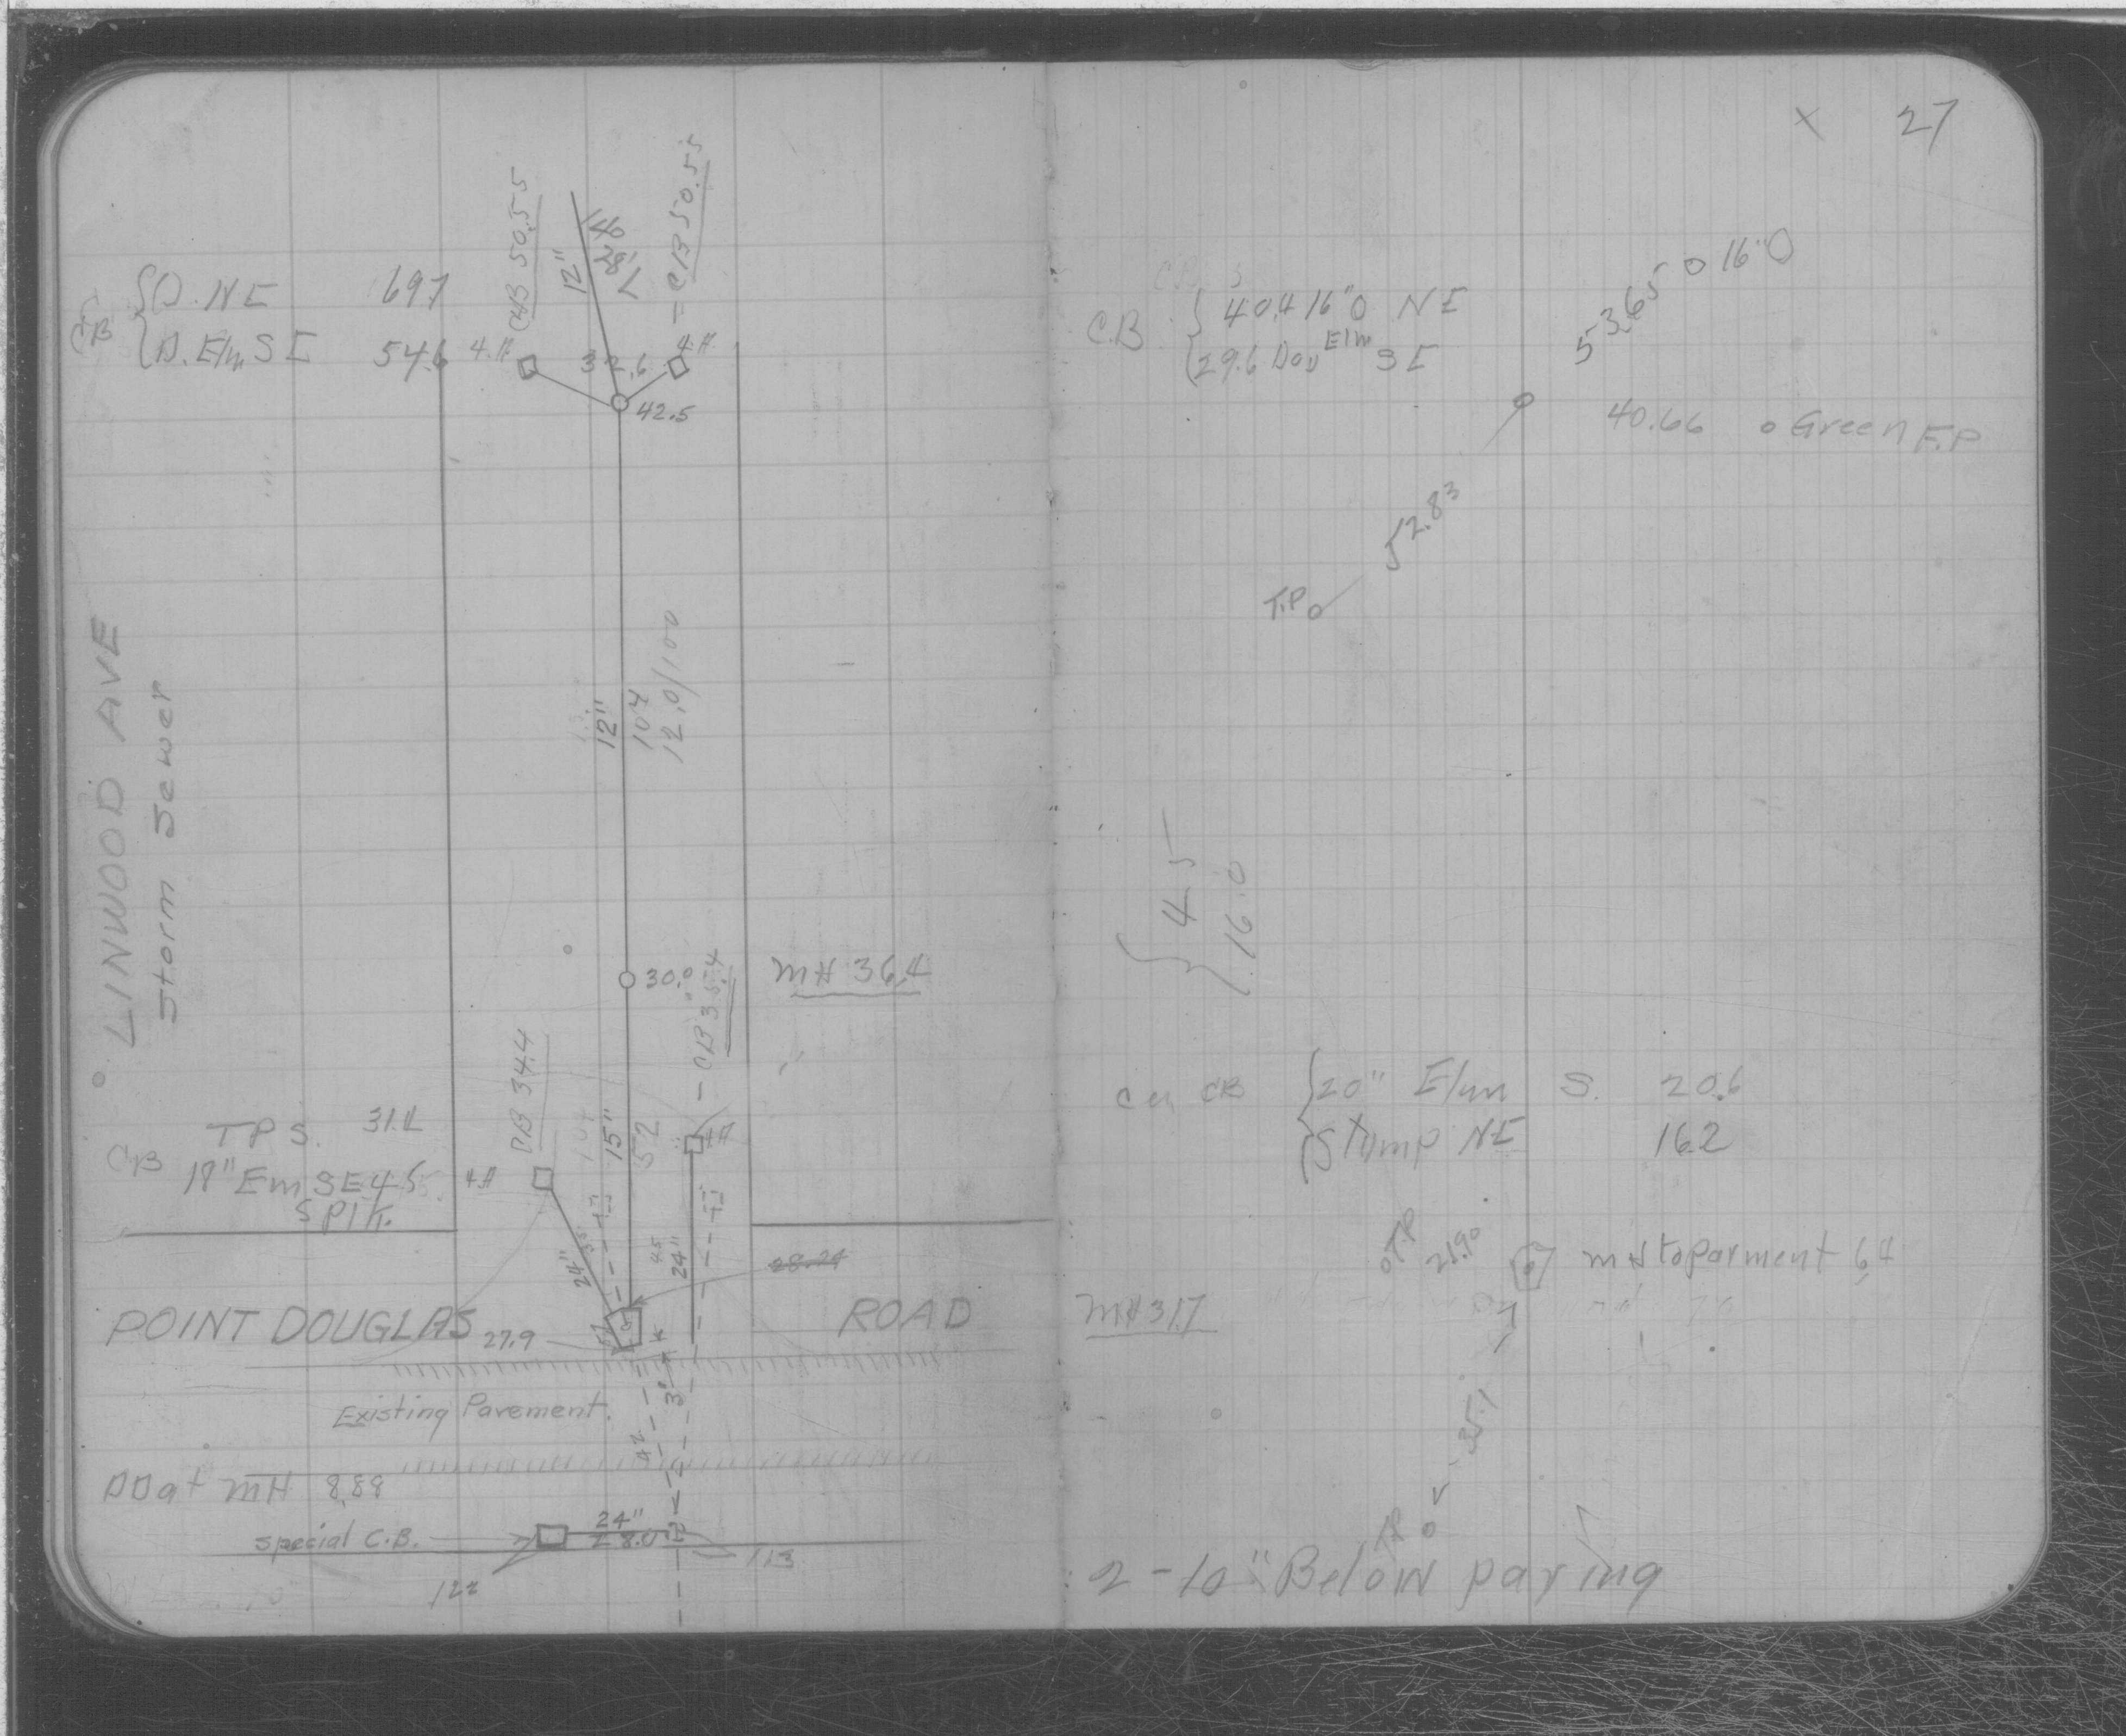 CB 50.55
12"
28'
CB 50.55
CB
O. NE 697
D. Elm SE 54.6
4.H
32.6
4.H
42.5
LINWOOD AVE
Storm Sewer
12"
107
12.0/100
30.0
MH 36.4
CB 35.4
CB 34.4
15"
52
T P S. 31.1
CB
18" Em SE 45
Spik.
4.H
24"
45
24"
28.24
POINT DOUGLAS ROAD
27.9
3'
Existing Pavement.
DD at MH 8.88
Special C.B.
24"
28.0
113
122
X 27
C.B
40.4 16" O NE
29.6 Dou Elm SE
53.65 O 16" O
40.66 o Green F.P
52.83
T.P
45
16.0
CB
20" Elm S. 20.6
Stump NE 16.2
TP
21.90
MH to parment 6.4
MH 31.7
35.1
2-10" Below paving